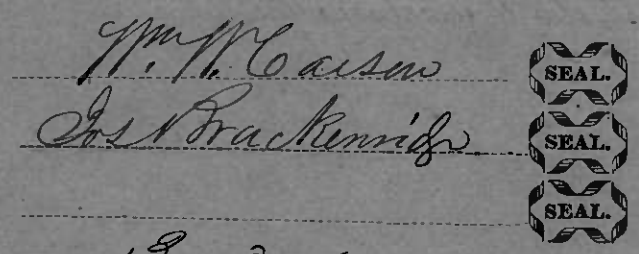 Wm. W. Carson SEAL.
Jos Brackenridge SEAL.
SEAL.